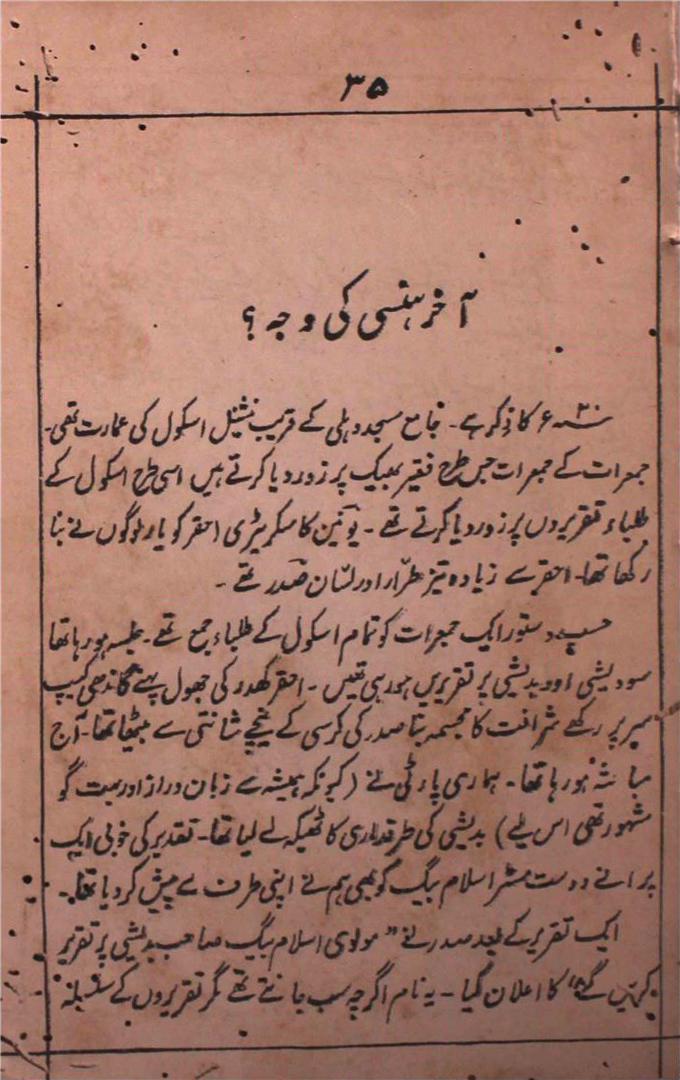 ۳۵
آخر ہنسی کی وجہ ؟
۳۰ء کا ذکر ہے ۔ جامع مسجد دہلی کے قریب نیشنل اسکول کی عمارت تھی۔
جمعرات کے جمعرات جس طرح فقیر بھیک پر زور دیا کرتے ہیں اسی طرح اسکول کے
طلباء تقریروں پر زور دیا کرتے تھے ۔ یونین کا سکریٹری احقر کو یار لوگوں نے بنا
رکھا تھا۔ احقر سے زیادہ تیز طرّار اور لسّان صدر تھے ۔
حسب دستور ایک جمعرات کو تمام اسکول کے طلباء جمع تھے ۔ جلسہ ہو رہا تھا
سودیشی اور بدیشی پر تقریریں ہو رہی تھیں ۔ احقر کھدر کی جھول پہنے گاندھی کیپ
سر پر رکھے شرافت کا مجسمہ بنا صدر کی کرسی کے نیچے شانتی سے بیٹھا تھا۔ آج
مباحثہ ہو رہا تھا ۔ ہماری پارٹی نے ( کیونکہ ہمیشہ سے زبان دراز اور بہت گو
مشہور تھی اس لیے ) بدیشی کی طرفداری کا ٹھیکہ لے لیا تھا۔ تقدیر کی خوبی ایک
پرانے دوست مسٹر اسلام بیگ کو بھی ہم نے اپنی طرف سے پیش کر دیا تھا۔
ایک تقریر کے بعد صدر نے " مولوی اسلام بیگ صاحب بدیشی پر تقریر
کریں گے" کا اعلان کیا ۔ یہ نام اگرچہ سب جانتے تھے مگر تقریروں کے سلسلہ